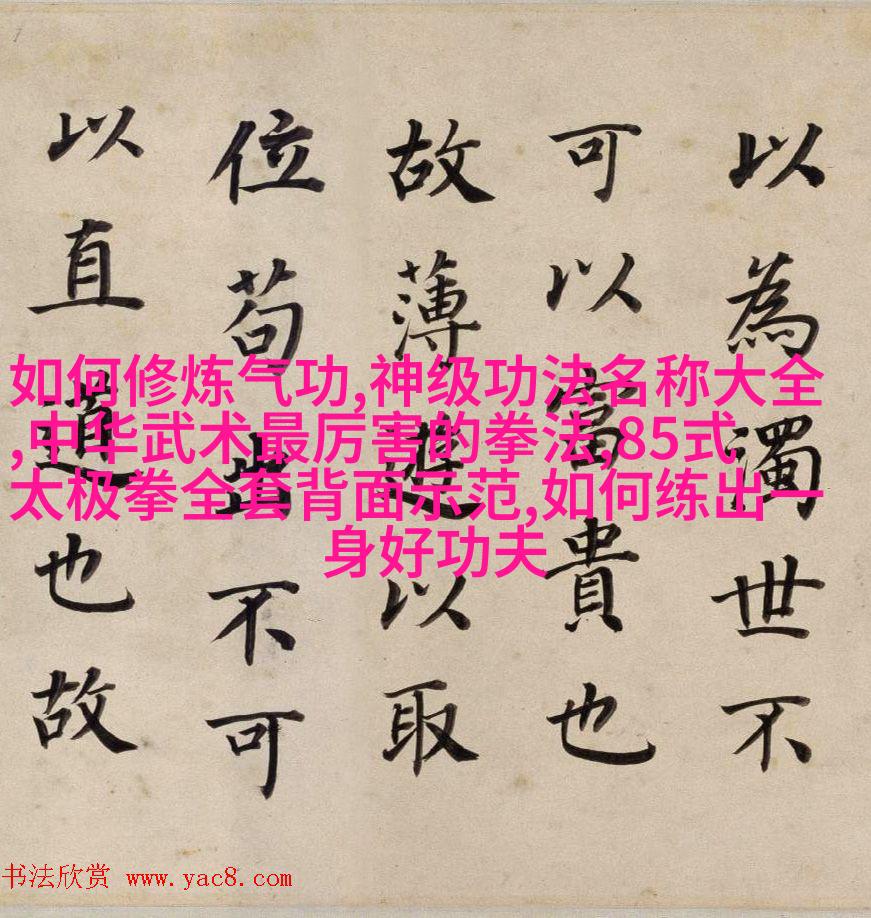 以為濁世不
可以富貴也
故薄遊以取
位苟出不可
以直道也故
如何修炼气功,神级功法名称大全
,中华武术最厉害的拳法,85式
太极拳全套背面示范,如何练出一
身好功夫
书法欣赏 www.yac8.com